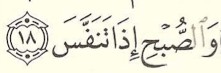 وَٱلصُّبْحِ إِذَا تَنَفَّسَ ١٨